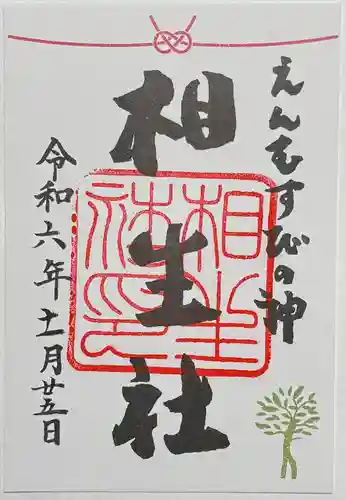 えんむすびの神
相生社
相生社印
令和六年十一月廿五日